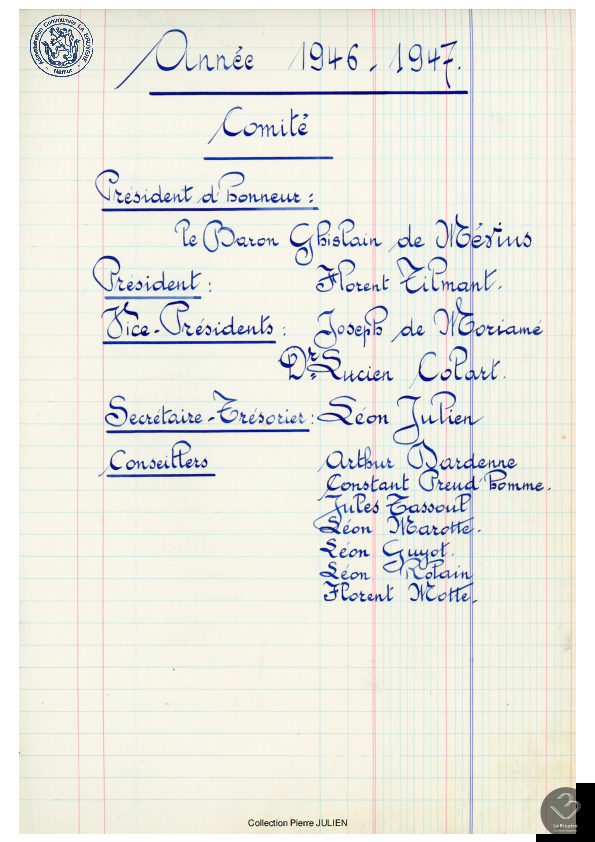 Administration Communale La Bruyère
Namur
Année 1946-1947.
Comité
Président d'honneur :
le Baron Ghislain de Mévius
Président : Florent Tilmant.
Vice-Présidents : Joseph de Moriamé
Dr. Lucien Colart.
Secrétaire-Trésorier : Léon Julien
Conseillers Arthur Dardenne
Constant Preud'homme.
Jules Tassoul
Léon Marotte.
Léon Guyot.
Léon Rolain
Florent Motte.
Collection Pierre JULIEN
La Bruyère